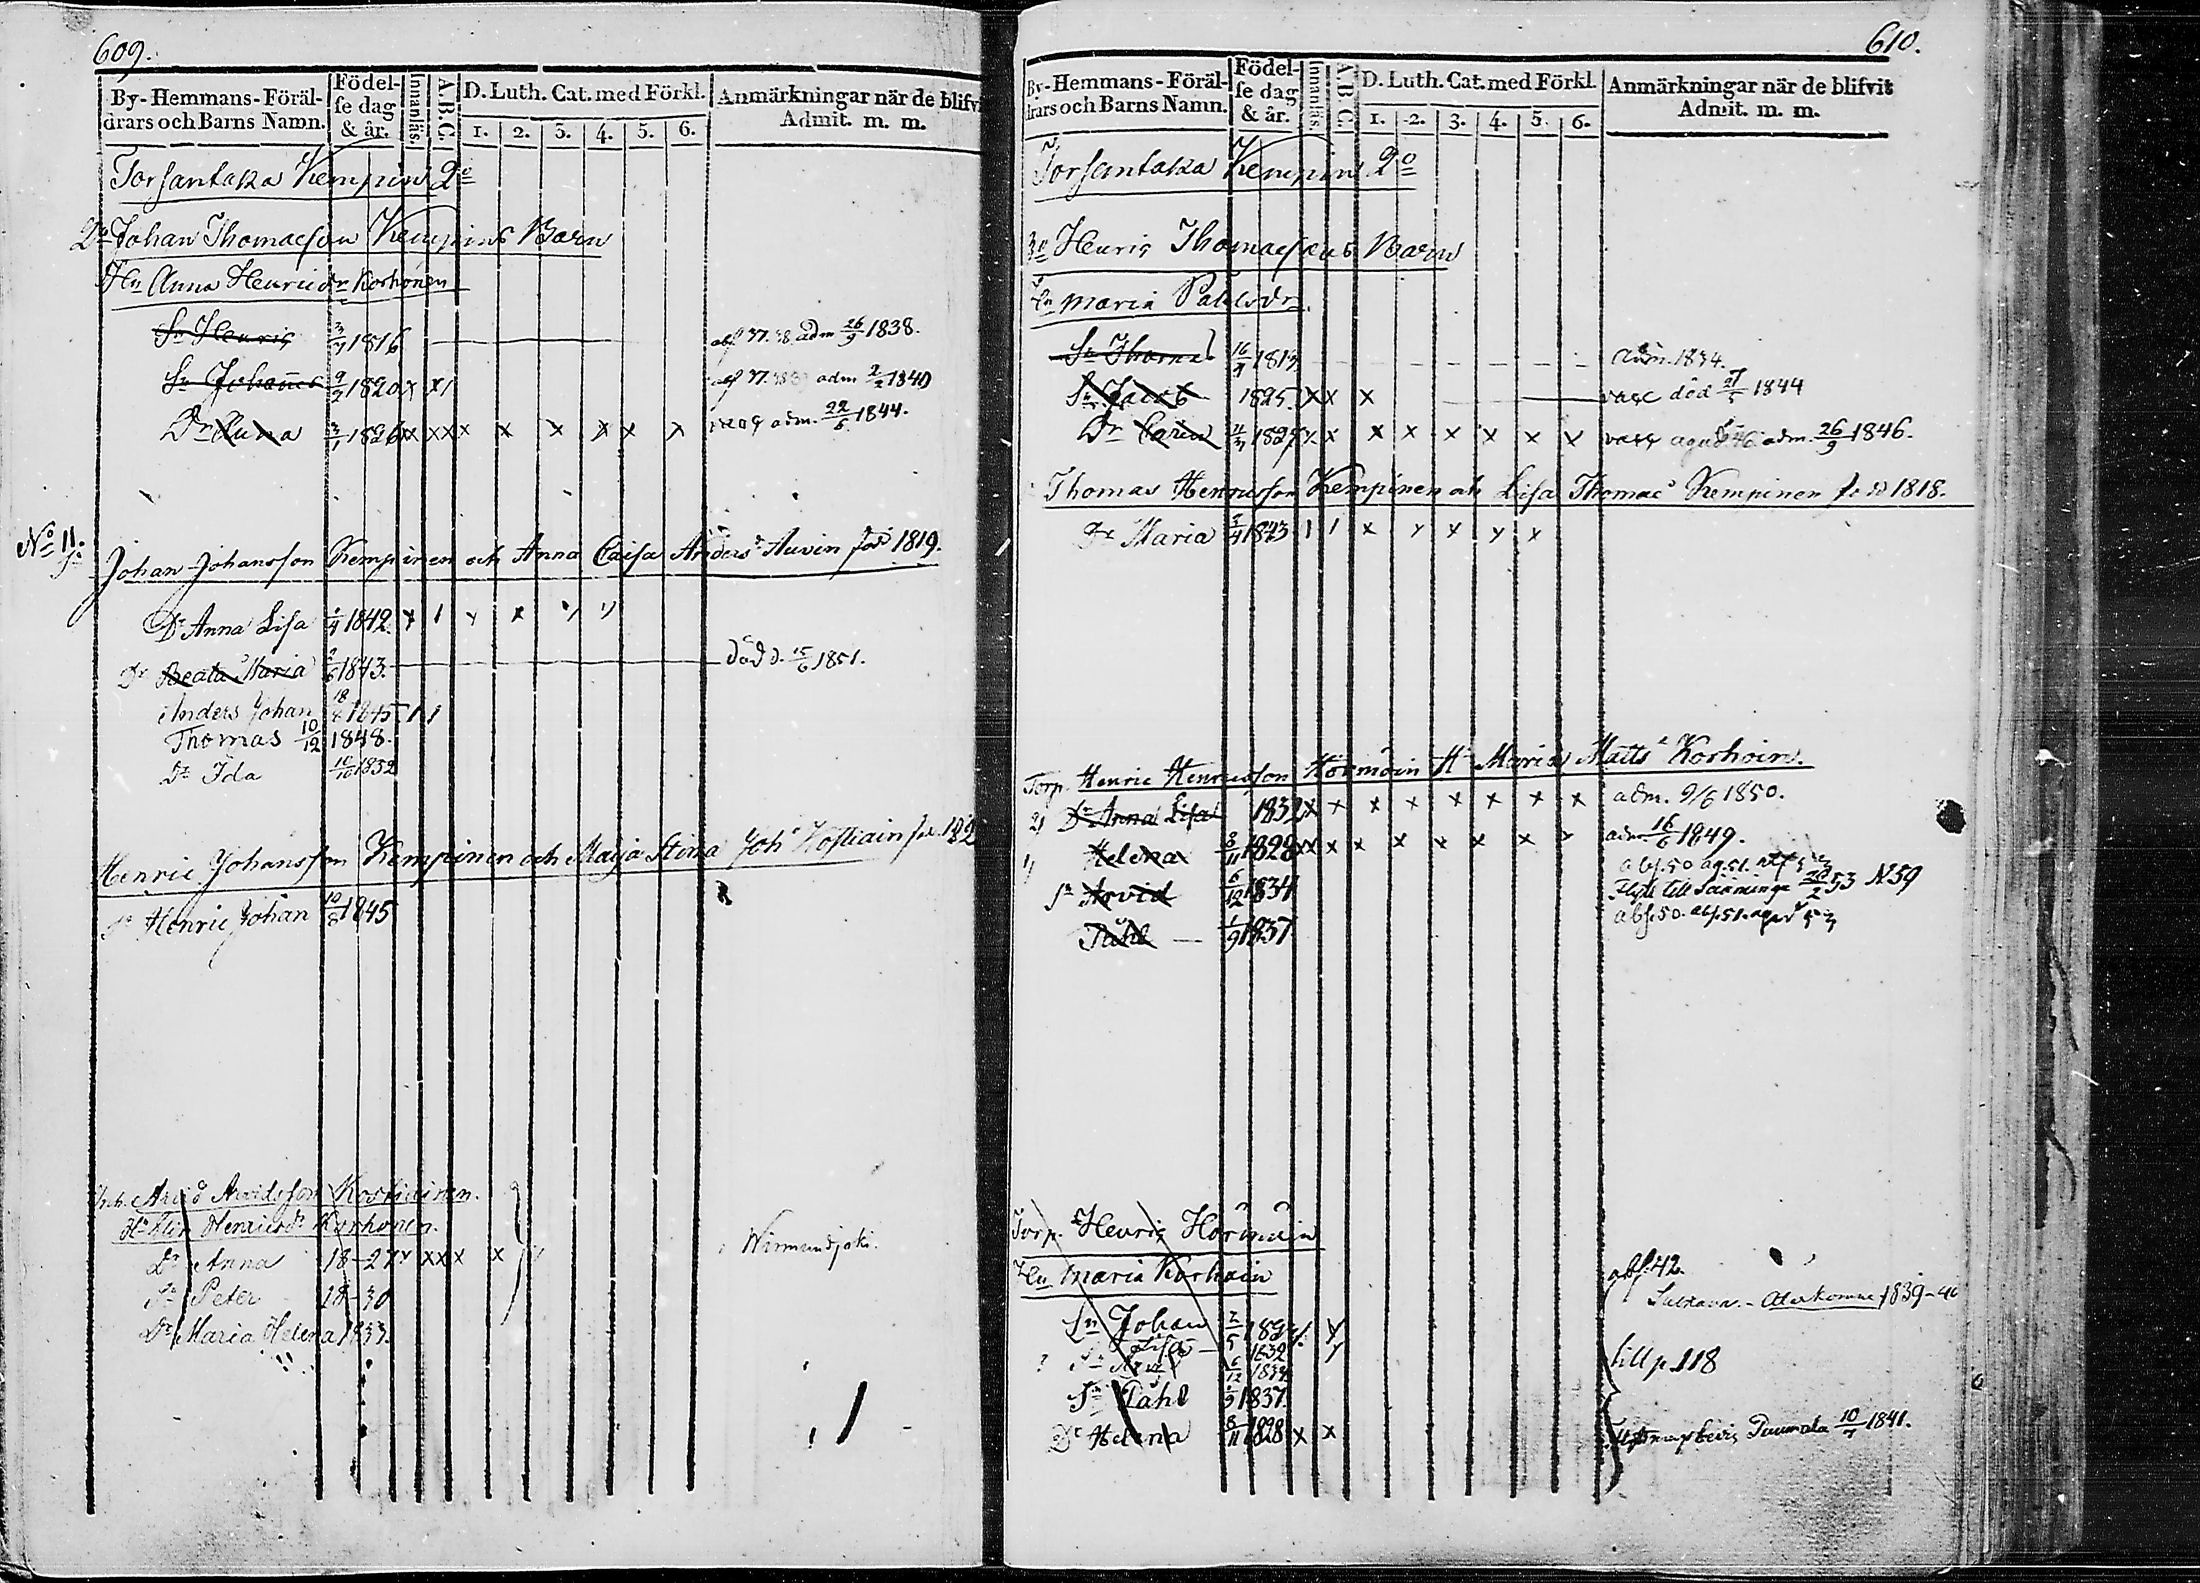 609.
By-Hemmans-Föräldrars och Barns Namn. Födelse dag & år. Innanläs. A.B.C. D. Luth. Cat. med Förkl. 1. 2. 3. 4. 5. 6. Anmärkningar när de blifvi Admit. m. m.
Torsantaka Kempin 2o
2o Johan Thomaeson Kempins Barn
Hu Anna Henricdr Korhonen
Sn Henric 3/7 1816 abs 37.38 adm 26/9 1838.
Sn Johannes 9/7 1820 x x 1 abs 37. adm 2/2 1840
Dr Anna 3/7 1826 xx xx x x x x x x adm. 22/6 1844.
No 11. Johan Johansson Kempinen och Anna Caisa Anders Auvin född 1819.
Dr Anna Lisa 1/4 1842. x 1 x x
Dr Beata Maria 2/6 1843. död d. 15/6 1851.
Anders Johan 18/8 1845 1 1
Thomas 10/12 1848.
Dr Ida 10/10 1852
Henric Johansson Kempinen och Maija Stina Joh. Kostiain föd. 182
Sn Henric Johan 10/8 1845
Inh. Arvid Arvidsson Kostiainen.
Hu Elin Henricsdr Korhonen.
Dr Anna 18-27 x xx x x Wirmundjoki.
Sn Peter 18-30
Dr Maria Helena 1833.
610.
By-Hemmans-Föräldrars och Barns Namn. Födelse dag & år. Innanläs. A.B.C. D. Luth. Cat. med Förkl. 1. 2. 3. 4. 5. 6. Anmärkningar när de blifvit Admit. m. m.
Torsantaka Kempin 2o
3o Henric Thomaesons Barn
Hu Maria Pahlsdr.
Sn Thomas 16/7 1813 adm. 1834.
Sn Jacob 1825. xx x vacc död 27/5 1844
Dr Carin 4/7 1827 x x x x x x x x vacc adm. 26/9 1846.
Thomas Henricsson Kempinen och Lisa Thomae Kempinen född 1818.
Dr Maria 3/4 1843 1 1 x x x x x
Torp. Henric Henricsson Hörmöin Hu Maria Matts Korhoin.
2) Dr Anna Lisa 1832 x x x x x x x x adm. 9/6 1850.
1) Helena 8/11 1828 xx x x x x x x x adm 16/6 1849.
Sn Arvid 6/12 1834 abs. 50 ag. 51. Flytt till Sääminge 20/2 53 N 59
Påhl 1/9 1837. abs. 50. abs. 51.
Torp. Henric Hörmöin
Hu Maria Korhoin abs. 42.
Sn Johan 2/5 Återkomne 1839-40
Lisa 1832
Sn Arvid 6/12 1834 till p. 118
Sn Påhl 1/9 1837.
Dr Helena 8/11 1828 x x Puumala 10/7 1841.